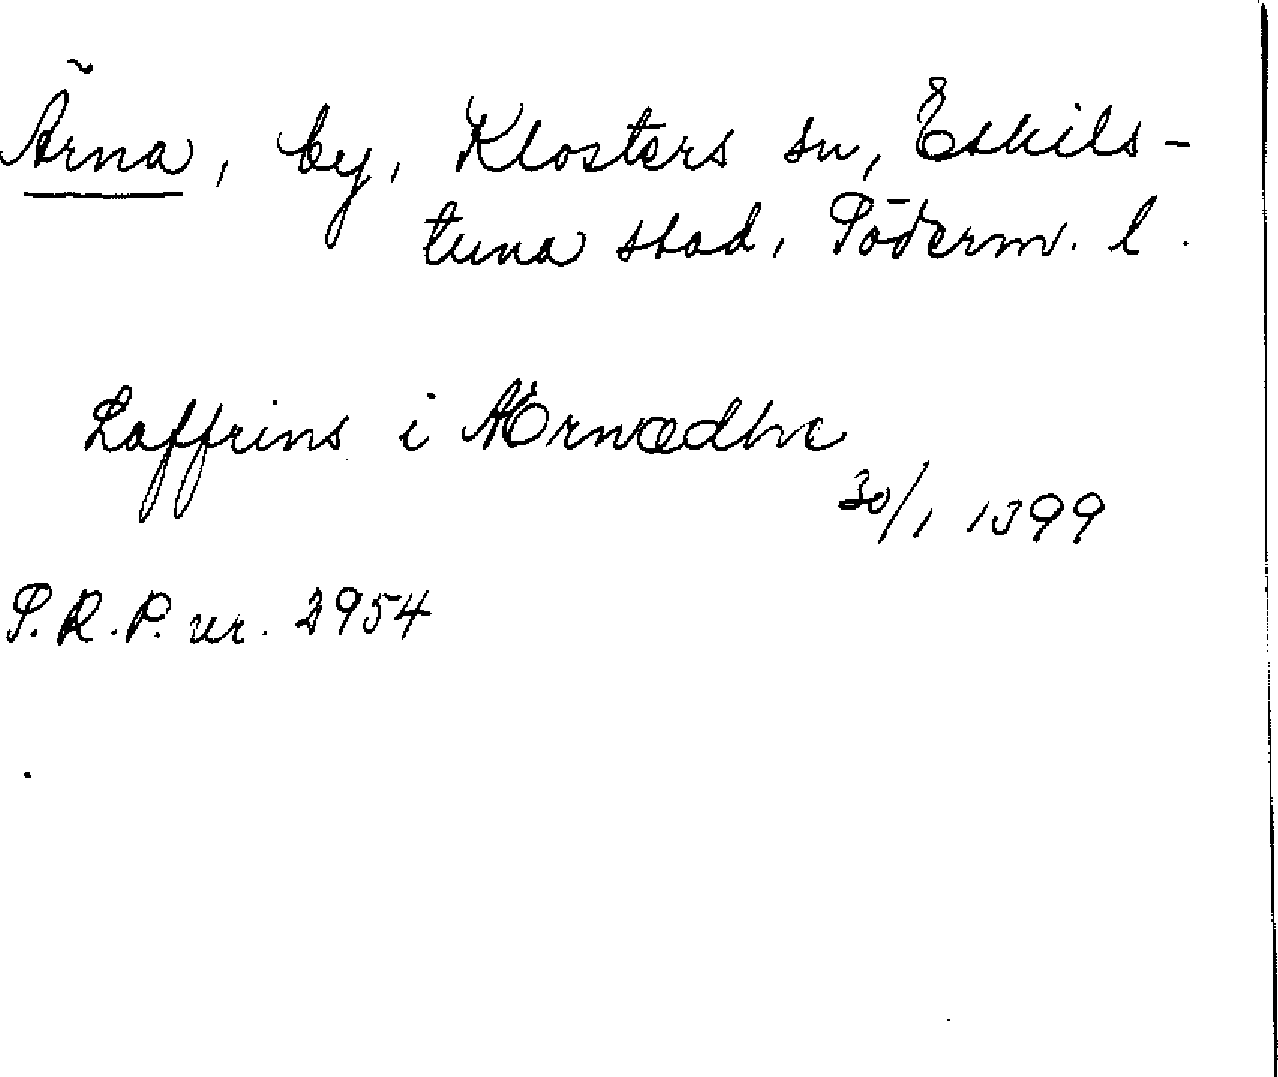 Ärna, by, Klosters sn, Eskils-
tuna stad, Söderm. l.
Laffrins i Ærnædhe
30/1 1399
S.R.P. nr. 2954